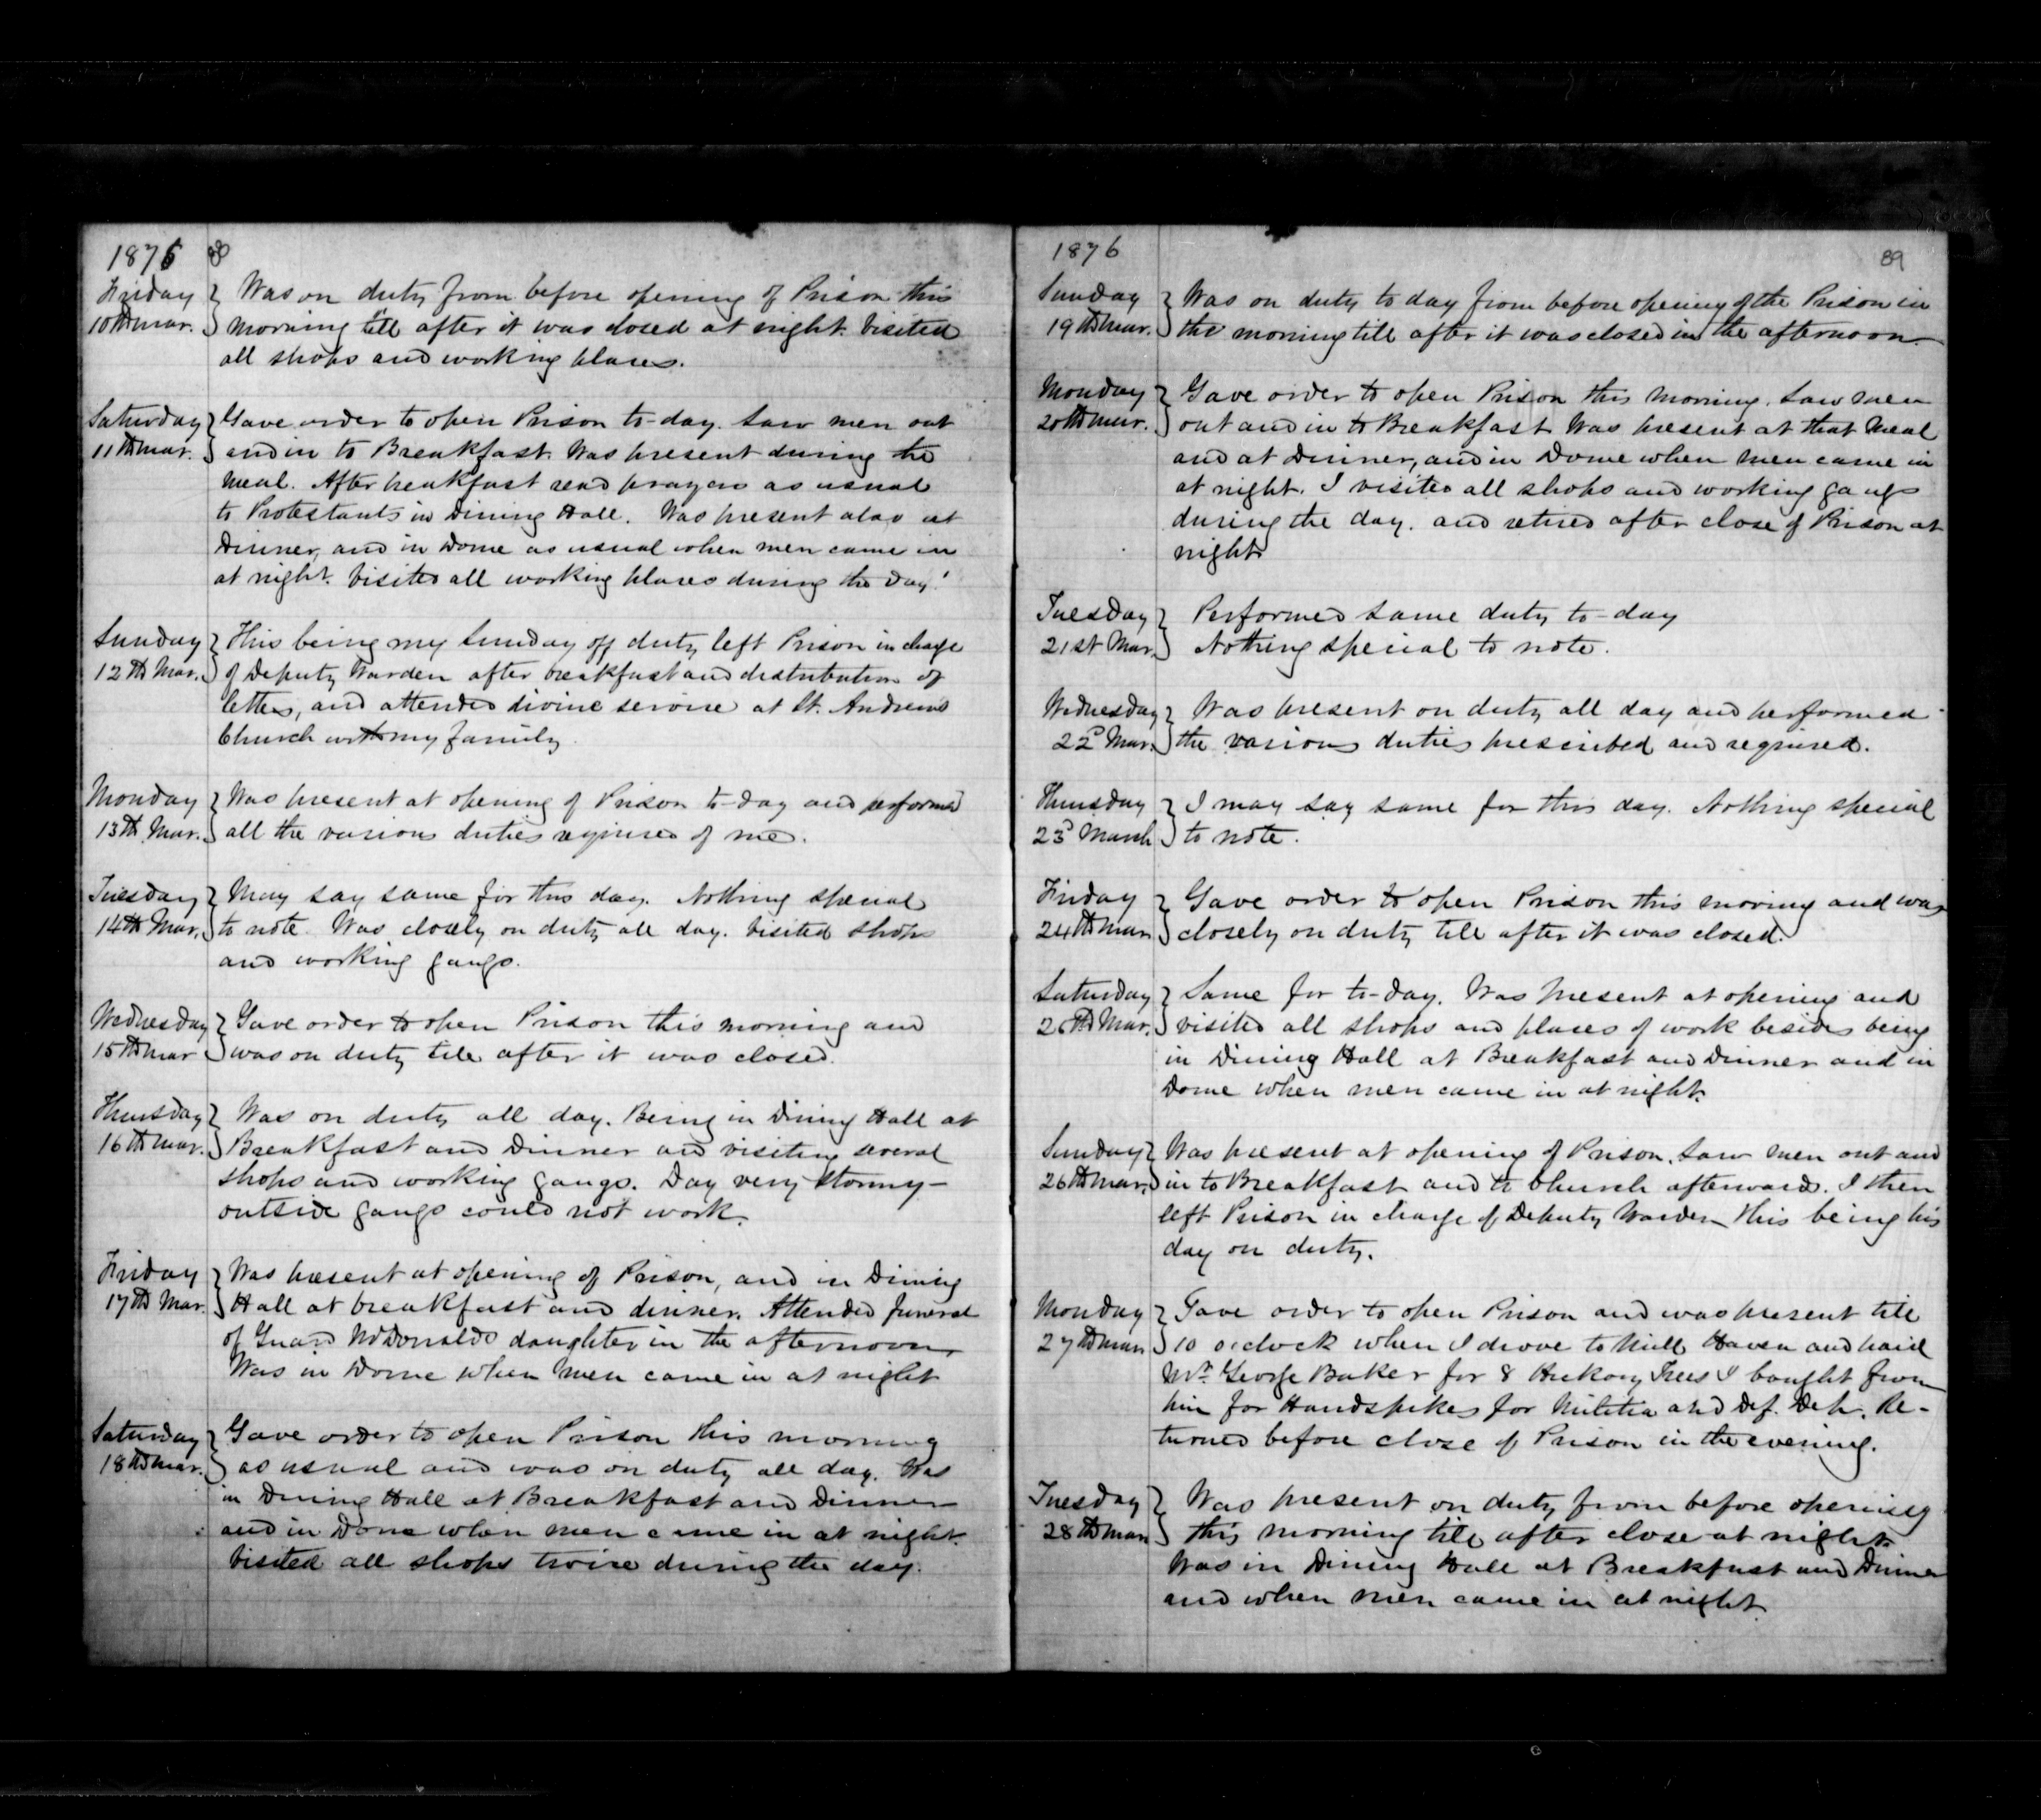 1876 88
Friday } Was on duty from before opening of Prison this
10th Mar. } morning till after it was closed at night. Visited
all shops and working places.
Saturday } Gave order to open Prison to-day. Saw men out
11th Mar. } and in to Breakfast. Was present during the
meal. After breakfast read prayers as usual
to Protestants in Dining Hall. Was present also at
Dinner, and in Dome as usual when men came in
at night. Visited all working places during the day.
Sunday } This being my Sunday off duty left Prison in charge
12th Mar. } of Deputy Warden after breakfast and distribution of
letters, and attended divine service at St. Andrews
Church with my family.
Monday } Was present at opening of Prison to-day and performed
13th Mar. } all the various duties required of me.
Tuesday } May say same for this day. Nothing special
14th Mar. } to note. Was closely on duty all day. Visited shops
and working gangs.
Wednesday } Gave order to open Prison this morning and
15th Mar } was on duty till after it was closed.
Thursday } Was on duty all day. Being in Dining Hall at
16th Mar. } Breakfast and Dinner and visiting several
shops and working gangs. Day very stormy -
outside gangs could not work.
Friday } Was present at opening of Prison, and in Dining
17th Mar. } Hall at breakfast and dinner. Attended funeral
of Guard McDonalds daughter in the afternoon.
Was in Dome when men came in at night
Saturday } Gave order to open Prison this morning
18th Mar. } as usual and was on duty all day. Was
in Dining Hall at Breakfast and Dinner
and in Dome when men came in at night.
Visited all shops twice during the day.
1876 89
Sunday } Was on duty to day from before opening of the Prison in
19th Mar. } the morning till after it was closed in the afternoon.
Monday } Gave order to open Prison this morning. Saw men
20th Mar. } out and in to Breakfast. Was present at that meal
and at Dinner, and in Dome when men came in
at night. I visited all shops and working gangs
during the day. and retired after close of Prison at
night
Tuesday } Performed same duty to-day
21st Mar. } Nothing special to note.
Wednesday } Was present on duty all day and performed
22d Mar. } the various duties prescribed and required.
Thursday } I may say same for this day. Nothing special
23d March } to note.
Friday } Gave order to open Prison this morning and was
24th Mar } closely on duty till after it was closed.
Saturday } Same for to-day. Was present at opening and
25th Mar. } visited all shops and places of work besides being
in Dining Hall at Breakfast and Dinner and in
Dome when men came in at night.
Sunday } Was present at opening of Prison. Saw men out and
26th Mar. } in to Breakfast and to Church afterwards. I then
left Prison in charge of Deputy Warden this being his
day on duty.
Monday } Gave order to open Prison and was present till
27th Mar } 10 o'clock when I drove to Mill Haven and paid
Mr. George Baker for 8 Hickory Trees I bought from
him for Handspikes for Militia and Def. Dep. Re-
turned before close of Prison in the evening.
Tuesday } Was present on duty from before opening
28th Mar } this morning till after close at night.
Was in Dining Hall at Breakfast and Dinner
and when men came in at night